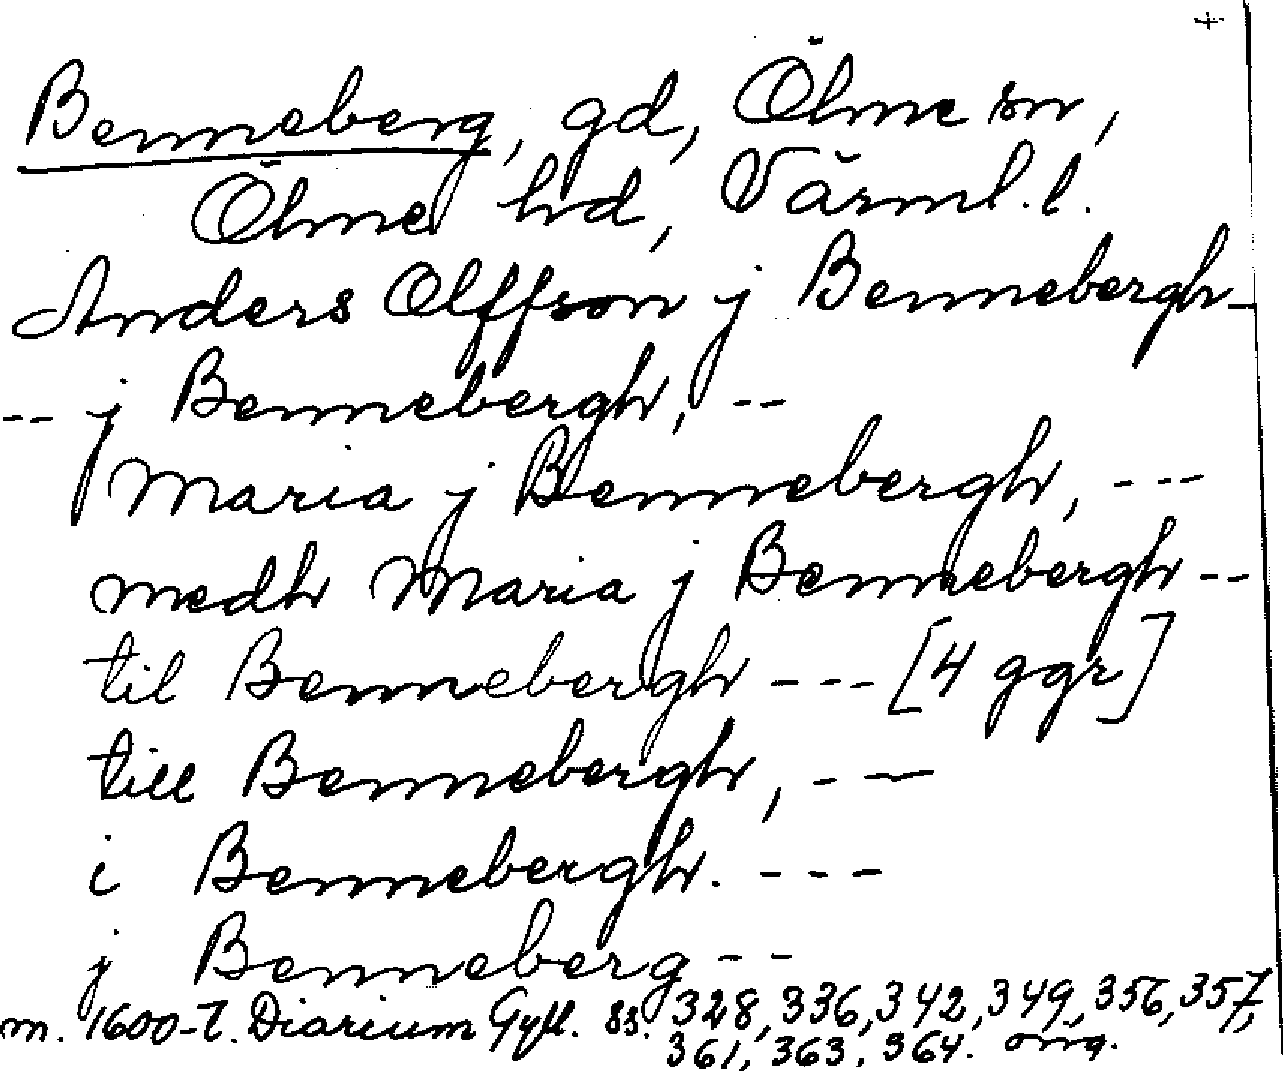 +
Benneberg, gd, Ölme sn,
Ölme hd, Värml. l.
Anders Olffson j Bennebergh-
-- j Bennebergh, --
Maria j Bennebergh, ---
medh Maria j Bennebergh --
til Bennebergh --- [4 ggr]
till Bennebergh, ---
i Bennebergh. ---
j Benneberg --
m. 1600-t. Diarium Gyll. ss. 328, 336, 342, 349, 356, 357,
361, 363, 364. orig.